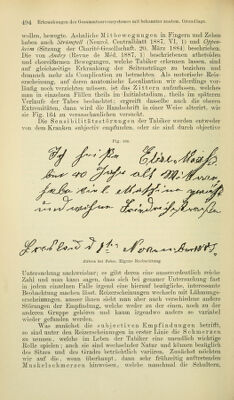 494 Erkrankungen des Gesamtnervensystems mit bekannter anatom. Grundlage.
wollen, bewegte. Aehnliche Mitbewegungen in Fingern und Zehen
haben auch Strümpell (Neurol. Centralblatt 1887, VI, 1) und Oppen-
heim (Sitzung der Charité-Gesellschaft, 20. März 1884) beschrieben.
Die von Audry (Revue de Méd. 1887, 1) beschriebenen athetoiden
und choreiformen Bewegungen, welche Tabiker erkennen lassen, sind
auf gleichzeitige Erkrankung der Seitenstränge zu beziehen und
demnach mehr als Complication zu betrachten. Als motorische Reiz-
erscheinung, auf deren anatomische Localisation wir allerdings vor-
läufig noch verzichten müssen, ist das Zittern aufzufassen, welches
man in einzelnen Fällen theils im Initialstadium, theils im späteren
Verlaufe der Tabes beobachtet; ergreift dasselbe auch die oberen
Extremitäten, dann wird die Handschrift in einer Weise alterirt, wie
sie Fig. 164 zu veranschaulichen versucht.
Die Sensibilitätsstörungen der Tabiker werden entweder
von den Kranken subjectiv empfunden, oder sie sind durch objective
Fig. 164.
Ich heiße
bin 40 Jahre alt
Breslau d
Zittern bei Tabes. Eigene Beobachtung
Untersuchung nachweisbar; es gibt deren eine ausserordentlich reiche
Zahl und man kann sagen, dass sich bei genauer Untersuchung fast
in jedem einzelnen Falle irgend eine hierauf bezügliche, interessante
Beobachtung machen lässt. Reizerscheinungen wechseln mit Lähmungs-
erscheinungen, ausser ihnen sieht man aber auch verschiedene andere
Störungen der Empfindung, welche weder zu der einen, noch zu der
anderen Gruppe gehören und kaum irgendwo anders so variabel
wieder gefunden werden.
Was zunächst die subjectiven Empfindungen betrifft,
so sind unter den Reizerscheinungen in erster Linie die Schmerzen
zu nennen, welche im Leben der Tabiker eine unendlich wichtige
Rolle spielen; auch sie sind wechselnder Natur und können bezüglich
des Sitzes und des Grades beträchtlich variiren. Zunächst möchten
wir auf die, wenn überhaupt, dann sehr frühzeitig auftretenden
Muskelschmerzen hinweisen, welche manchmal die Schultern,